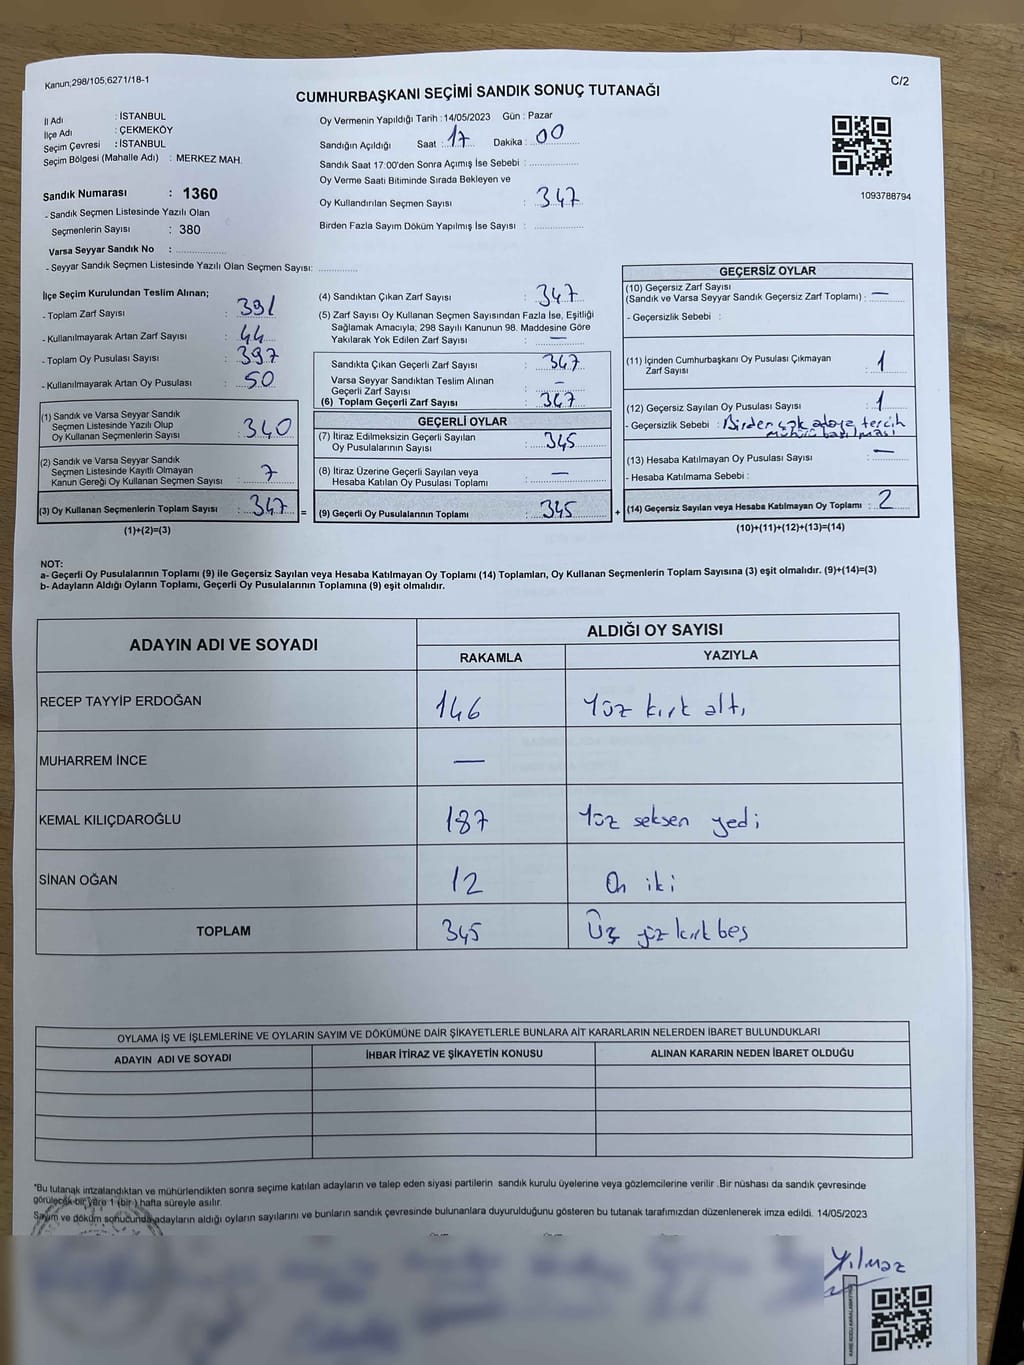 Kanun;298/105,6271/18-1
C/2
CUMHURBAŞKANI SEÇİMİ SANDIK SONUÇ TUTANAĞI
İl Adı : İSTANBUL
İlçe Adı : ÇEKMEKÖY
Seçim Çevresi : İSTANBUL
Seçim Bölgesi (Mahalle Adı) : MERKEZ MAH.
Sandık Numarası : 1360
- Sandık Seçmen Listesinde Yazılı Olan
Seçmenlerin Sayısı : 380
Varsa Seyyar Sandık No :
- Seyyar Sandık Seçmen Listesinde Yazılı Olan Seçmen Sayısı:
Oy Vermenin Yapıldığı Tarih :14/05/2023 Gün : Pazar
Sandığın Açıldığı Saat : 17 Dakika : 00
Sandık Saat 17:00'den Sonra Açımış İse Sebebi :
Oy Verme Saati Bitiminde Sırada Bekleyen ve
Oy Kullandırılan Seçmen Sayısı : 347
Birden Fazla Sayım Döküm Yapılmış İse Sayısı :
1093788794
İlçe Seçim Kurulundan Teslim Alınan;
- Toplam Zarf Sayısı : 391
- Kullanılmayarak Artan Zarf Sayısı : 44
- Toplam Oy Pusulası Sayısı : 397
- Kullanılmayarak Artan Oy Pusulası : 50
(1) Sandık ve Varsa Seyyar Sandık
Seçmen Listesinde Yazılı Olup
Oy Kullanan Seçmenlerin Sayısı : 340
(2) Sandık ve Varsa Seyyar Sandık
Seçmen Listesinde Kayıtlı Olmayan
Kanun Gereği Oy Kullanan Seçmen Sayısı : 7
(3) Oy Kullanan Seçmenlerin Toplam Sayısı : 347 =
(1)+(2)=(3)
(4) Sandıktan Çıkan Zarf Sayısı : 347
(5) Zarf Sayısı Oy Kullanan Seçmen Sayısından Fazla İse, Eşitliği
Sağlamak Amacıyla; 298 Sayılı Kanunun 98. Maddesine Göre
Yakılarak Yok Edilen Zarf Sayısı : —
Sandıkta Çıkan Geçerli Zarf Sayısı : 347
Varsa Seyyar Sandıktan Teslim Alınan
Geçerli Zarf Sayısı : –
(6) Toplam Geçerli Zarf Sayısı : 347
GEÇERLİ OYLAR
(7) İtiraz Edilmeksizin Geçerli Sayılan
Oy Pusulalarının Sayısı : 345
(8) İtiraz Üzerine Geçerli Sayılan veya
Hesaba Katılan Oy Pusulası Toplamı : —
(9) Geçerli Oy Pusulalarının Toplamı : 345 +
GEÇERSİZ OYLAR
(10) Geçersiz Zarf Sayısı
(Sandık ve Varsa Seyyar Sandık Geçersiz Zarf Toplamı) : —
- Geçersizlik Sebebi :
(11) İçinden Cumhurbaşkanı Oy Pusulası Çıkmayan
Zarf Sayısı : 1
(12) Geçersiz Sayılan Oy Pusulası Sayısı : 1
- Geçersizlik Sebebi : Birden çok adaya tercih
mührü basılması
(13) Hesaba Katılmayan Oy Pusulası Sayısı : —
- Hesaba Katılmama Sebebi :
(14) Geçersiz Sayılan veya Hesaba Katılmayan Oy Toplamı : 2
(10)+(11)+(12)+(13)=(14)
NOT:
a- Geçerli Oy Pusulalarının Toplamı (9) ile Geçersiz Sayılan veya Hesaba Katılmayan Oy Toplamı (14) Toplamları, Oy Kullanan Seçmenlerin Toplam Sayısına (3) eşit olmalıdır. (9)+(14)=(3)
b- Adayların Aldığı Oyların Toplamı, Geçerli Oy Pusulalarının Toplamına (9) eşit olmalıdır.
ADAYIN ADI VE SOYADI
ALDIĞI OY SAYISI
RAKAMLA YAZIYLA
RECEP TAYYİP ERDOĞAN 146 Yüz kırk altı
MUHARREM İNCE —
KEMAL KILIÇDAROĞLU 187 Yüz seksen yedi
SİNAN OĞAN 12 On iki
TOPLAM 345 Üç yüz kırk beş
OYLAMA İŞ VE İŞLEMLERİNE VE OYLARIN SAYIM VE DÖKÜMÜNE DAİR ŞİKAYETLERLE BUNLARA AİT KARARLARIN NELERDEN İBARET BULUNDUKLARI
ADAYIN ADI VE SOYADI İHBAR İTİRAZ VE ŞİKAYETİN KONUSU ALINAN KARARIN NEDEN İBARET OLDUĞU
"Bu tutanak imzalandıktan ve mühürlendikten sonra seçime katılan adayların ve talep eden siyasi partilerin sandık kurulu üyelerine veya gözlemcilerine verilir .Bir nüshası da sandık çevresinde
görülecek bir yere 1 (bir ) hafta süreyle asılır.
Sayım ve döküm sonucunda adayların aldığı oyların sayılarını ve bunların sandık çevresinde bulunanlara duyurulduğunu gösteren bu tutanak tarafımızdan düzenlenerek imza edildi. 14/05/2023
Yılmaz